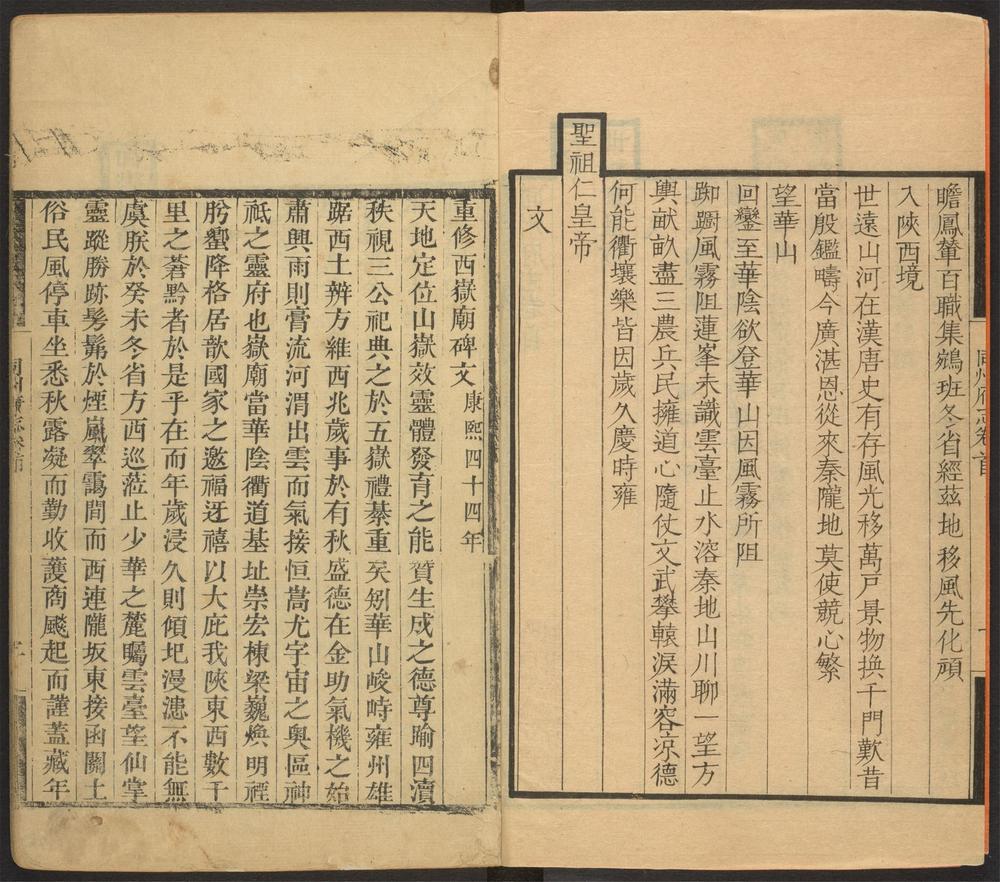 瞻鳳輦百職集鵷班冬省經茲地移風先化頑
入陝西境
世遠山河在漢唐史有存風光移萬戸景物換千門歎昔
當殷鑑疇今廣湛恩從來秦隴地莫使競心繁
望華山
回鑾至華陰欲登華山因風霧所阻
踟蹰風霧阻蓮峯未識雲臺止水溶秦地山川聊一望方
輿獻畝盡三農兵民擁道心隨仗文武攀轅淚滿容涼德
何能衢壤樂皆因歲久慶時雍
聖祖仁皇帝
文
重修西嶽廟碑文康熙四十四年
天地定位山嶽效靈體發育之能贊生成之德尊踰四瀆
秩視三公祀典之於五嶽禮綦重矣矧華山峻峙雍州雄
踞西土辨方維西兆歲事於有秋盛德在金助氣機之始
肅興雨則膏流河渭出雲而氣接恒嵩尤宇宙之奧區神
祗之靈府也嶽廟當華陰衢道基址崇宏棟梁巍煥明禋
肹蠁降格居歆國家之邀福迓禧以大庇我陝東西數千
里之蒼黔者於是乎在而年歲浸久則傾圯漫漶不能無
虞朕於癸未冬省方西巡蒞止少華之麓矚雲臺望仙掌
靈蹤勝跡髣髴於煙嵐翠靄間而西連隴坂東接函關土
俗民風停車坐悉秋露凝而勤收穫商飈起而謹蓋藏年